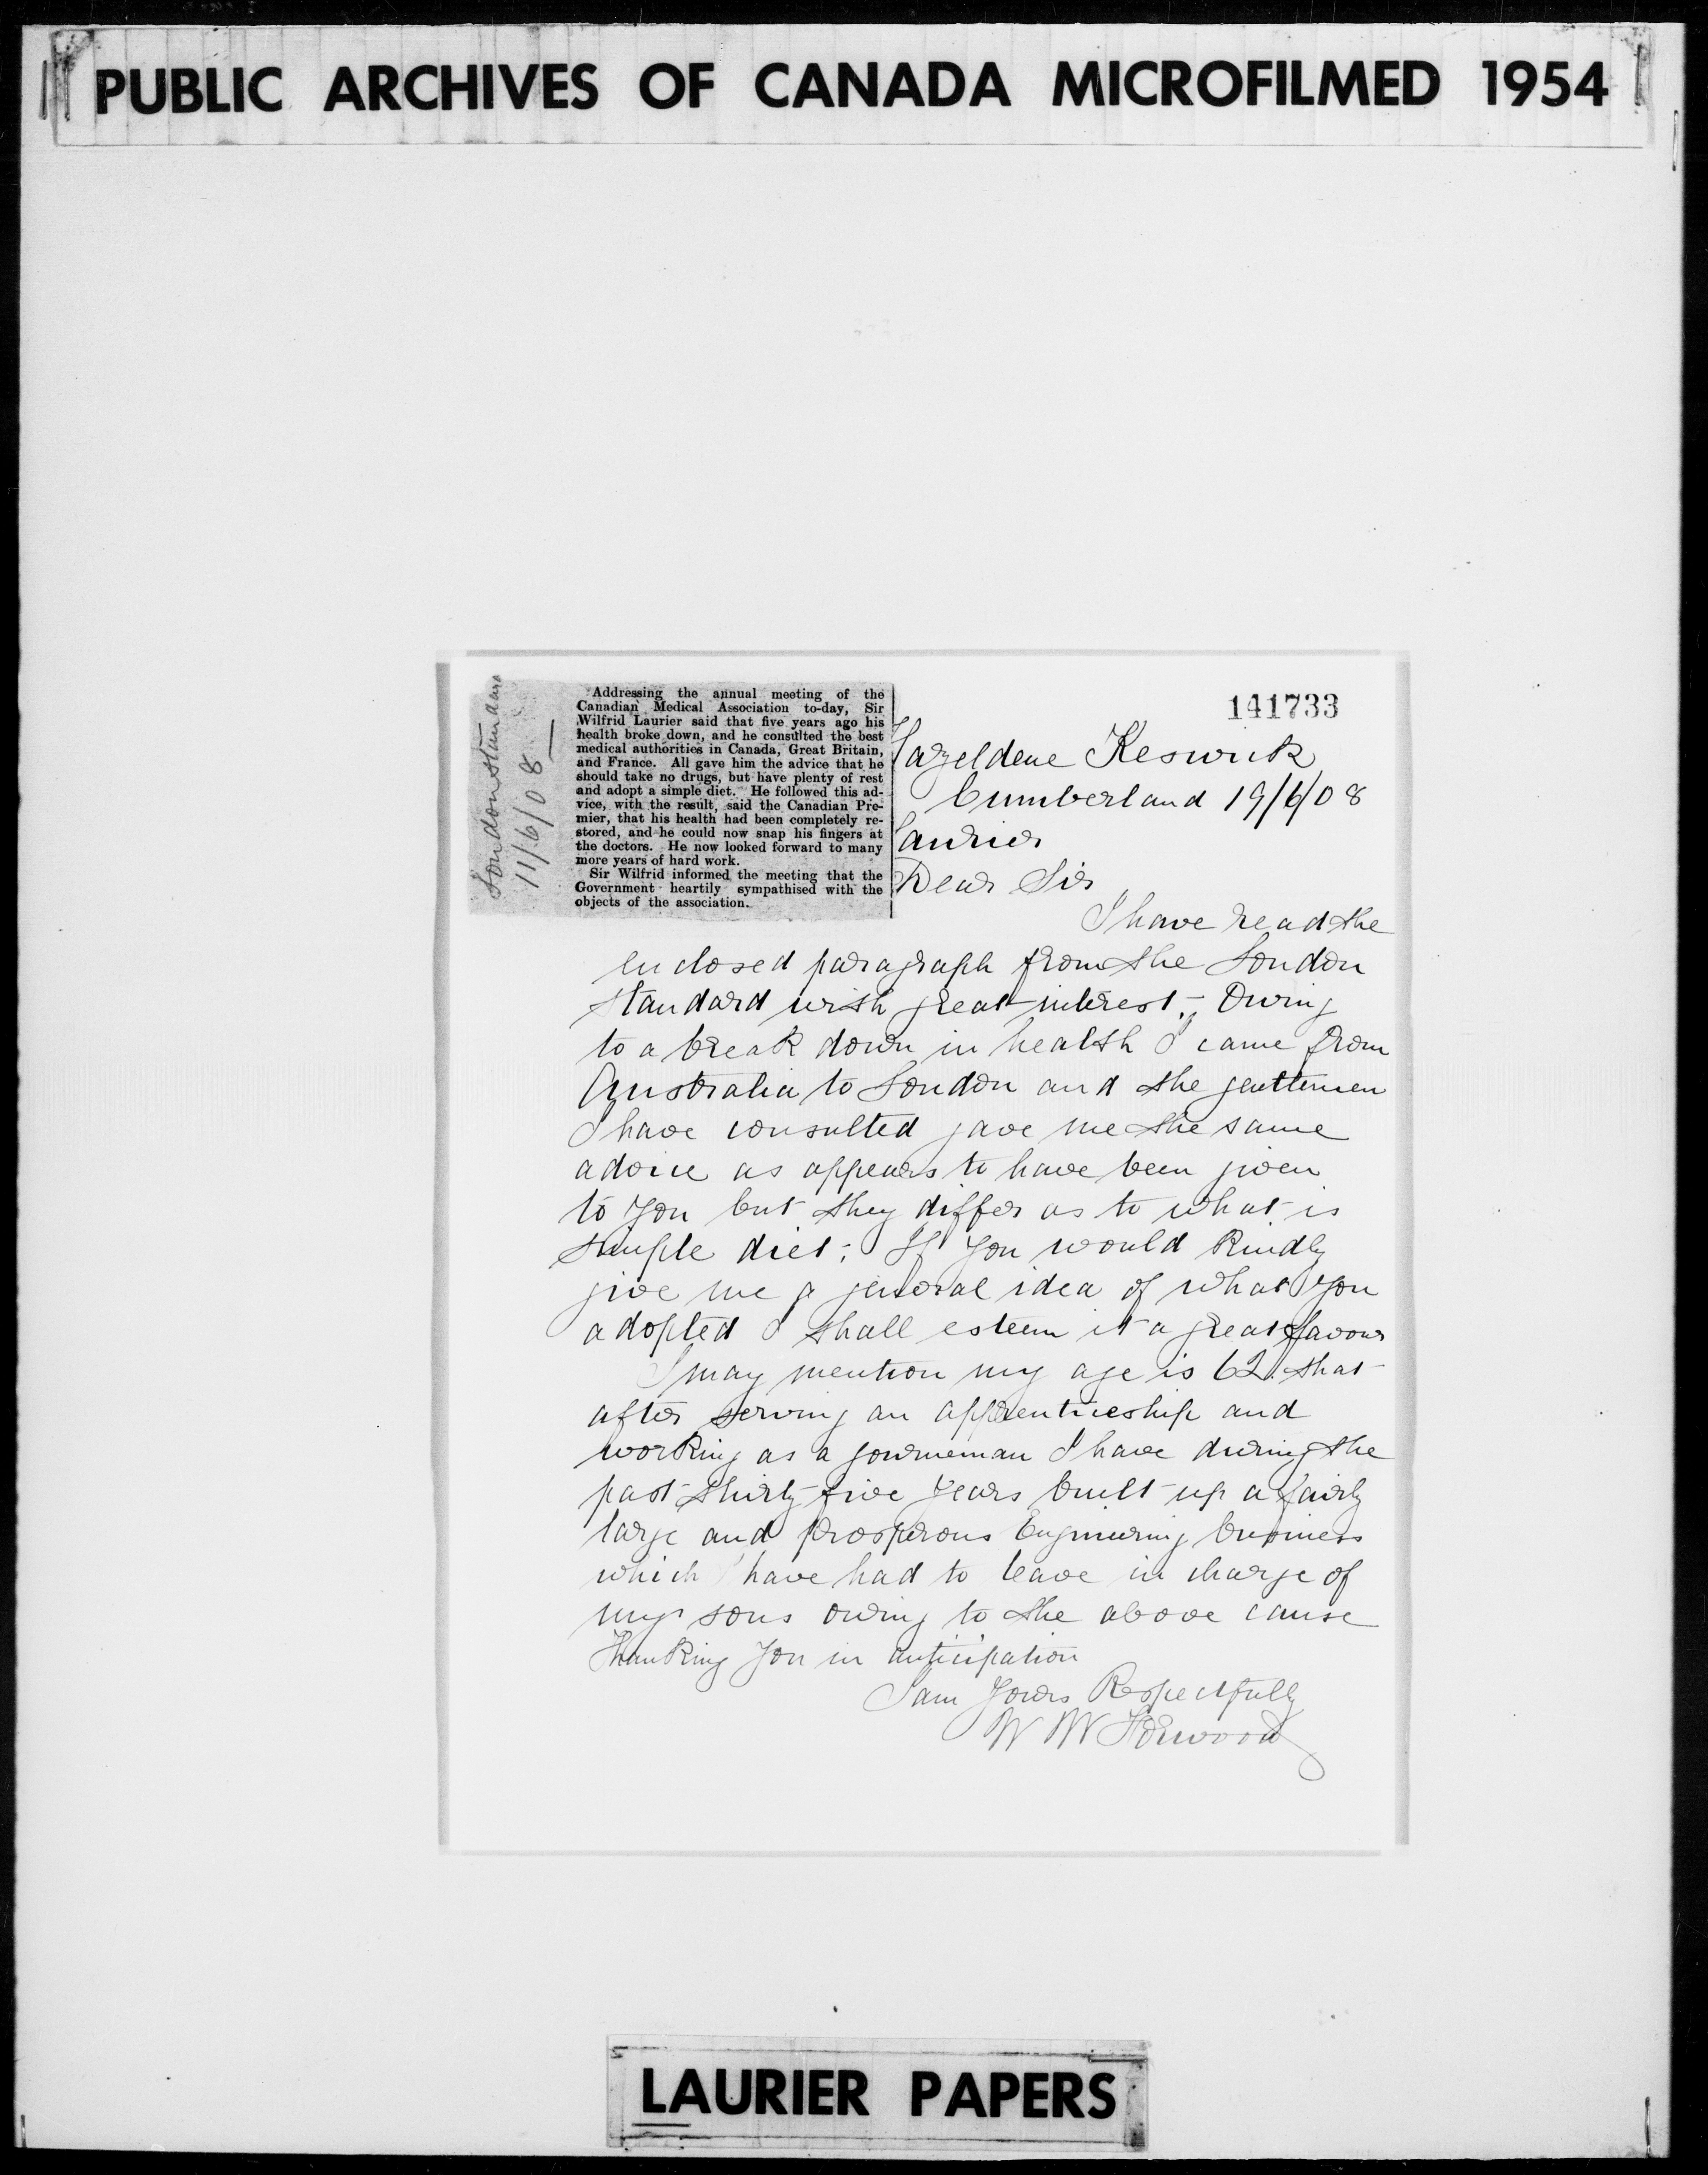 PUBLIC ARCHIVES OF CANADA MICROFILMED 1954
London Standard
11/6/08
Addressing the annual meeting of the
Canadian Medical Association to-day, Sir
Wilfrid Laurier said that five years ago his
health broke down, and he consulted the best
medical authorities in Canada, Great Britain,
and France. All gave him the advice that he
should take no drugs, but have plenty of rest
and adopt a simple diet. He followed this ad-
vice, with the result, said the Canadian Pre-
mier, that his health had been completely re-
stored, and he could now snap his fingers at
the doctors. He now looked forward to many
more years of hard work.
Sir Wilfrid informed the meeting that the
Government heartily sympathised with the
objects of the association.
141733
Hazeldene Keswick
Cumberland 19/6/08
Laurier
Dear Sir
I have read the
enclosed paragraph from the London
Standard with great interest. Owing
to a break down in health I came from
Australia to London and the gentlemen
I have consulted gave me the same
advice as appears to have been given
to you but they differ as to what is
simple diet; If you would kindly
give me a general idea of what you
adopted I shall esteem it a great favour
I may mention my age is 62. that
after serving an apprenticeship and
working as a journeman I have during the
past thirty five years built up a fairly
large and prosperous Engineering business
which I have had to leave in charge of
my sons owing to the above cause
Thanking you in anticipation
I am Yours Respectfully
W Forwood
LAURIER PAPERS